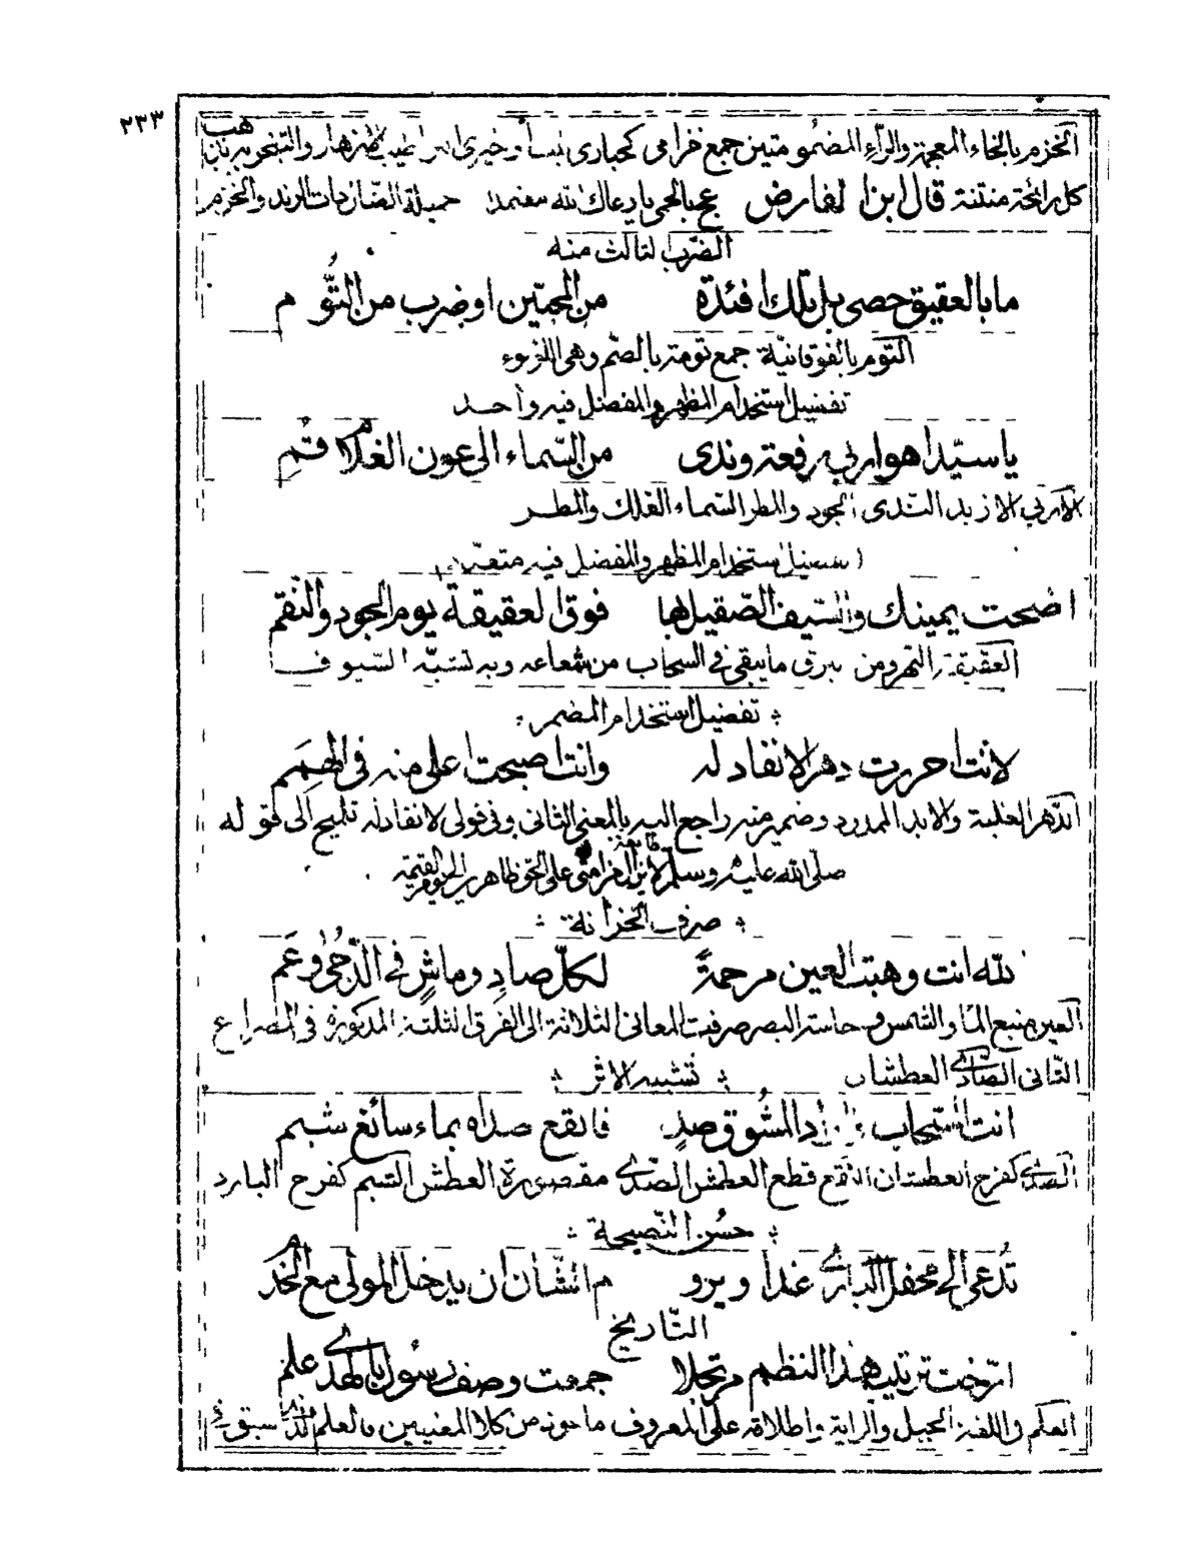 ٢٣٣
الخزم بالخاء المعجمة والزاء المضمومتين جمع خزامى كحبارى
كل رائحة منتنة قال ابن الفارض عج بالحمى يا رعاك الله معتمدا خميلة الضال ذات الرند والخزم
الضرب الثالث منه
ما بالعقيق حصى بل تلك افئدة من المحبّين او ضرب من التُّوم
التوم بالفوقانيّة جمع تومة بالضم وهى اللؤلوء
تفضيل استخدام المظهر والمفضل فيه واحد
يا سيّدا هو اربى رفعة وندى من السّماء الى عون الغلام قُمِ
الاربى الازيد الندى الجود والمطر السماء الفلك والمطر
تفضيل استخدام المظهر والمفضل فيه متعدد
اضحت يمينك والسّيف الصّقيل لها فوق العقيقة يوم الجود والنّقم
العقيقة النهر ومن البرق ما يبقى فى السحاب من شعاعه وبه تشبّه السيوف
تفضيل استخدام المضمر
لانت احرزت دهرا لا نفاد له وانت اصبحت اعلى منه فى الهِمَم
الدهر الغلبة والابد الممدود وضمير منه راجع اليه بالمعنى الثانى وفى قولى لا نفاد له تلميح الى قوله
صلى الله عليه وسلم لا يزال من امتى على الحق ظاهرين الى يوم القيمة
صرف الخزانة
لله انت وهبت العين مرحمةً لكلّ صادٍ وماشٍ فى الدُّجى وعَم
العين منبع الماء والشمس وحاسة البصر صرفت المعانى الثلاثة الى الفرق الثلثة المذكورة فى المصراع
الثانى الصادى العطشان تشبيه الاثر
انت السّحاب المشوق صدٍ فانقع صداه بماء سائغ شبم
الصدى كفرح العطشان النقع قطع العطش الصدى مقصورة العطش الشبم كفرح البارد
حسن النّصيحة
تُدعى الى محفل البارى غدا ويرو م الشّان ان يدخل المولى مع الخدم
التّاريخ
ارّخت ترتيب هذا النظم مرتجلا جمعت وصف رسول بالهدى علم
العلم فى اللغة الجبل والراية واطلاقه على المعروف ماخوذ من كلا المعنيين فالعلم الذى سبق فى